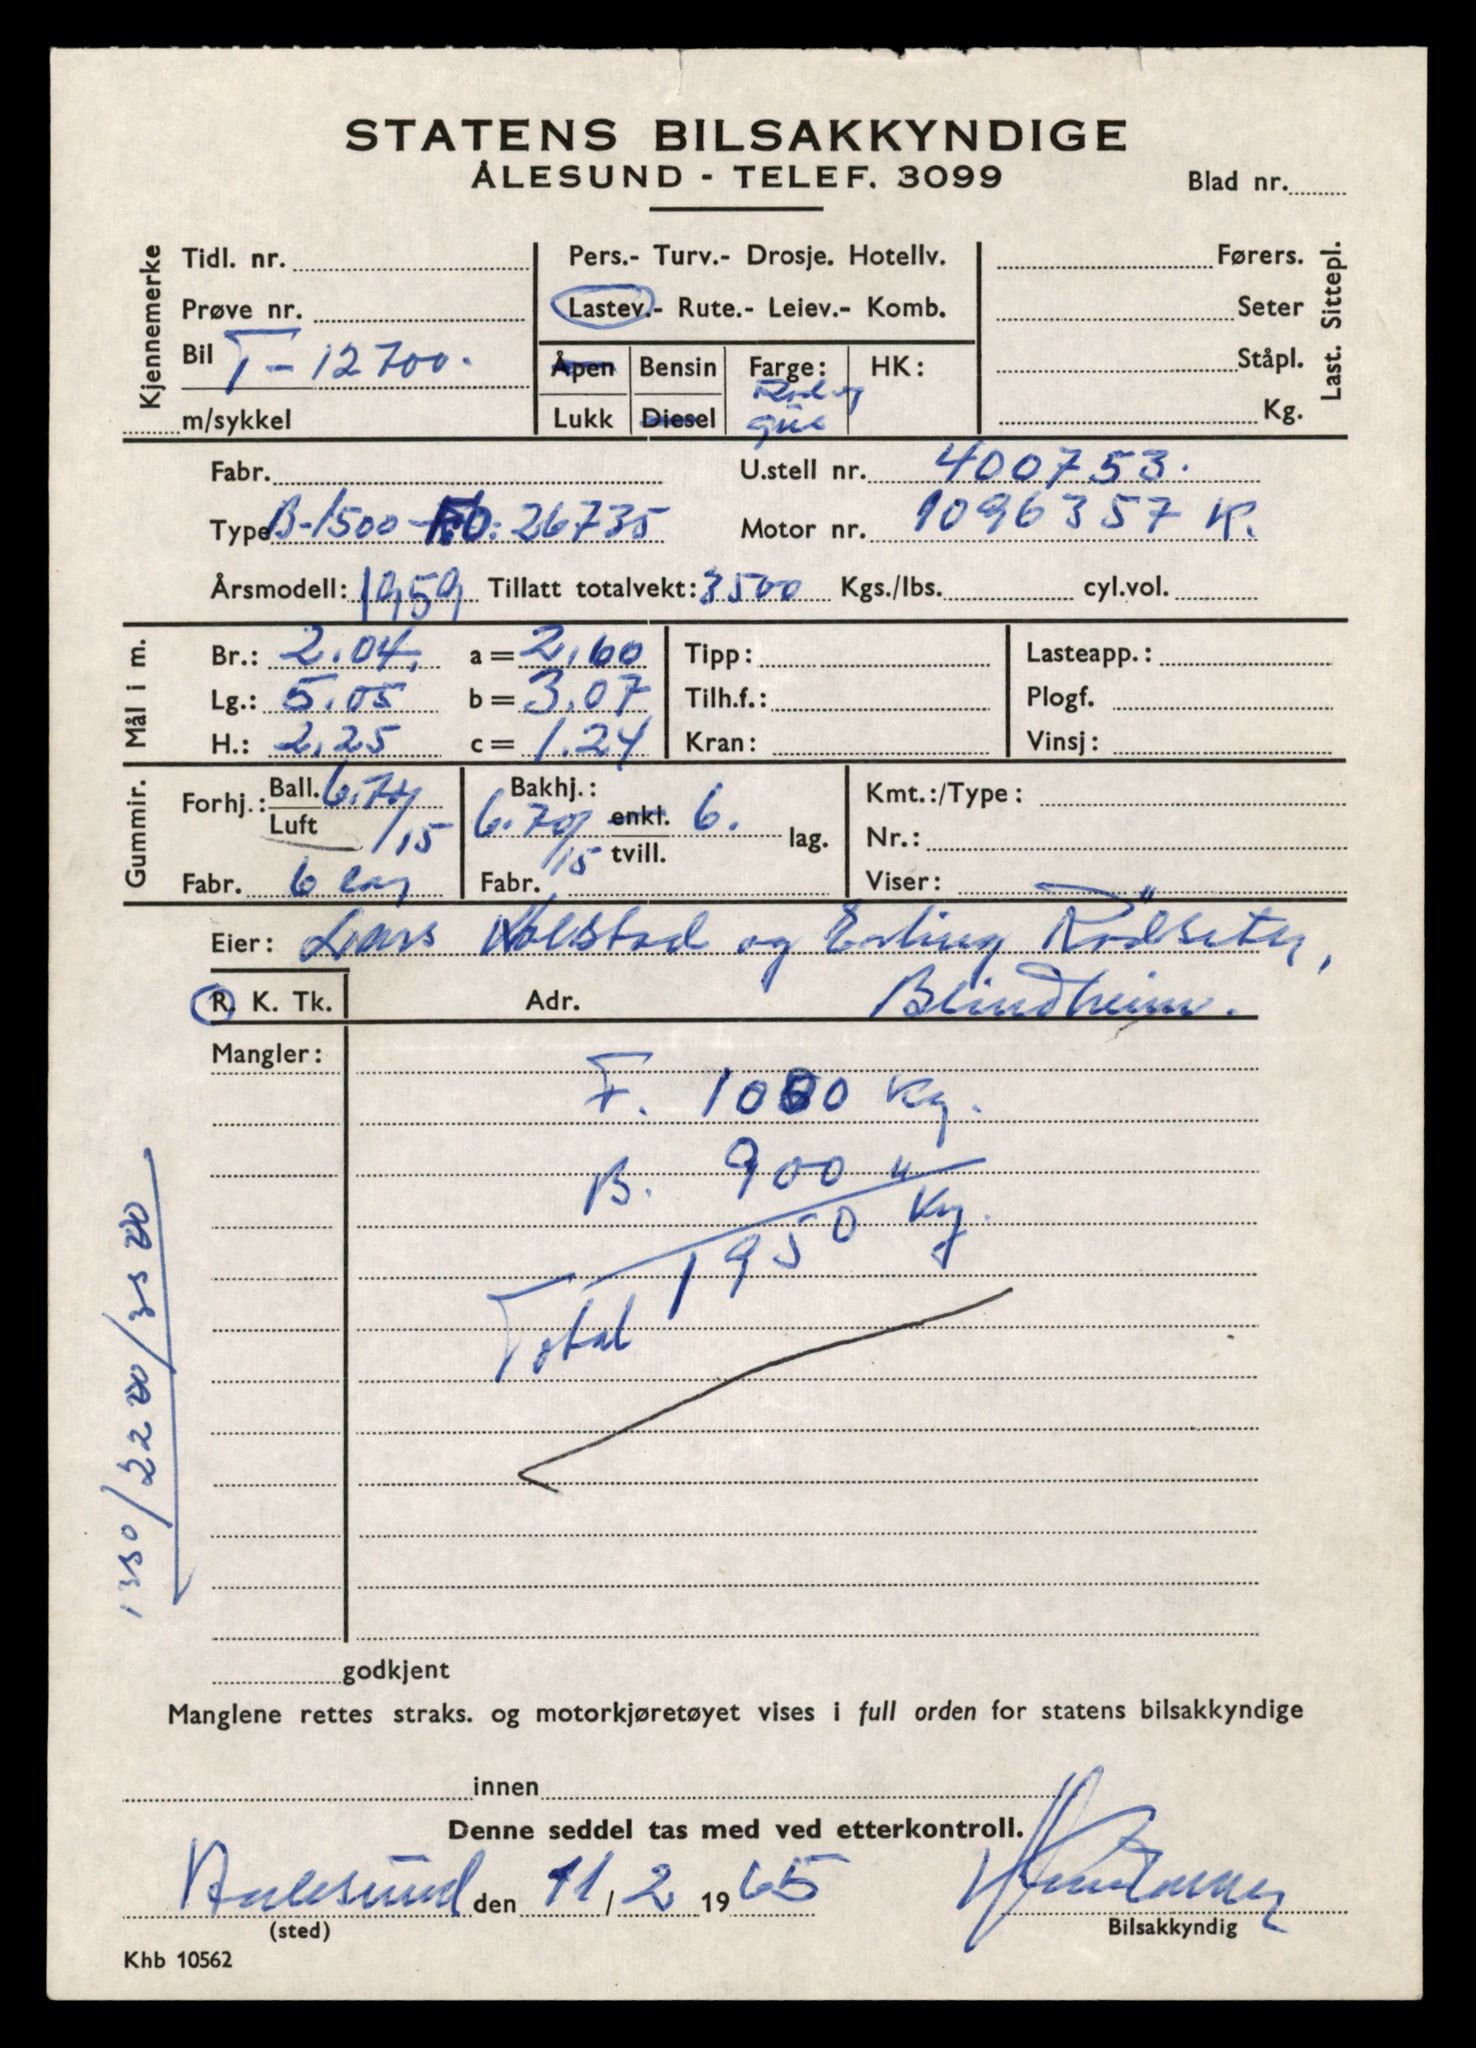 STATENS BILSAKKYNDIGE
ÅLESUND - TELEF. 3099
Blad nr.
Kjennemerke
Tidl. nr.
Prøve nr.
Bil T-12700.
m/sykkel
Pers.- Turv.- Drosje. Hotellv.
Lastev.- Rute.- Leiev.- Komb.
Åpen Bensin Farge: HK:
Lukk Diesel
Førers.
Seter
Ståpl.
Kg.
Last. Sittepl.
Fabr. U.stell nr. 400753.
Type B-1500 - FD: 26735 Motor nr. 1096357 K.
Årsmodell: 1959 Tillatt totalvekt: 3500 Kgs./lbs. cyl.vol.
Mål i m.
Br.: 2.04. a = 2.60 Tipp: Lasteapp.:
Lg.: 5.05 b = 3.07 Tilh.f.: Plogf.
H.: 2.25 c = 1.24 Kran: Vinsj:
Gummir.
Forhj.: Ball. 6.70/15
Luft
Fabr. 6 lag
Bakhj.:
6.70/15 enkl. 6. lag.
tvill.
Fabr.
Kmt.:/Type:
Nr.:
Viser:
Eier: Lars Holstad og Erling Rödseter,
R. K. Tk. Adr. Blindheim.
Mangler:
F. 1050 kg.
B. 900 "
Total 1950 kg.
1350/2200/3500
godkjent
Manglene rettes straks. og motorkjøretøyet vises i full orden for statens bilsakkyndige
innen
Denne seddel tas med ved etterkontroll.
Aalesund den 11/2 1965
(sted) Bilsakkyndig
Khb 10562